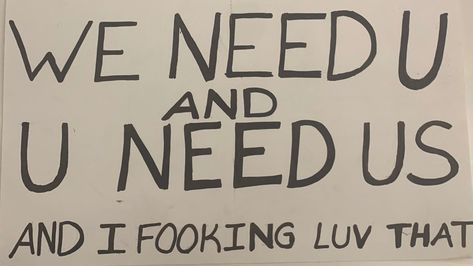 WE NEED U
AND
U NEED US
AND I FOOKING LUV THAT